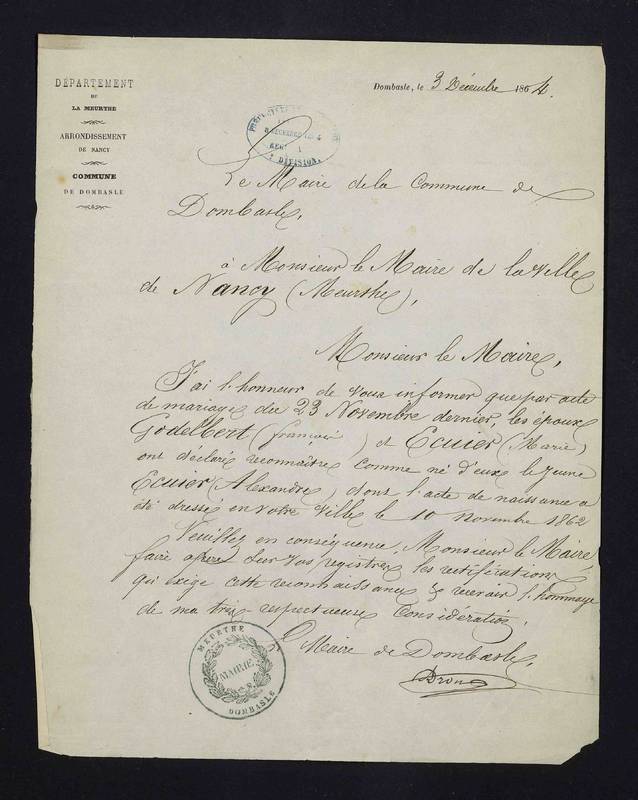 DÉPARTEMENT
DE
LA MEURTHE
ARRONDISSEMENT
DE NANCY
COMMUNE
DE DOMBASLE
Dombasle, le 3 Décembre 1864.
DIVISION.
Le Maire de la Commune de
Dombasle,
à Monsieur le Maire de la Ville
de Nancy (Meurthe),
Monsieur le Maire,
J'ai l'honneur de vous informer que par acte
de mariage du 23 Novembre dernier, les époux
Godelbert (françois) et Ecuier (Marie)
ont déclaré reconnaitre comme né d'eux le jeune
Ecuier (Alexandre), dont l'acte de naissance a
été dressé en votre Ville le 10 Novembre 1862
Veuillez en conséquence, Monsieur le Maire,
faire sur vos registres les rectifications
qu'exige cette reconnaissance & recevoir l'hommage
de ma très respectueuse Considération.
L Maire de Dombasle,
Drou
MEURTHE
MAIRIE
DOMBASLE